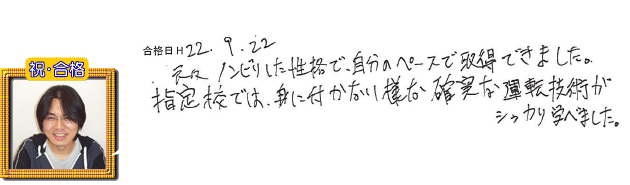 合格日H22.9.22
祝・合格
元々ノンビリした性格で、自分のペースで取得できました。
指定校では、身に付かない様な確実な運転技術が
シッカリ学べました。